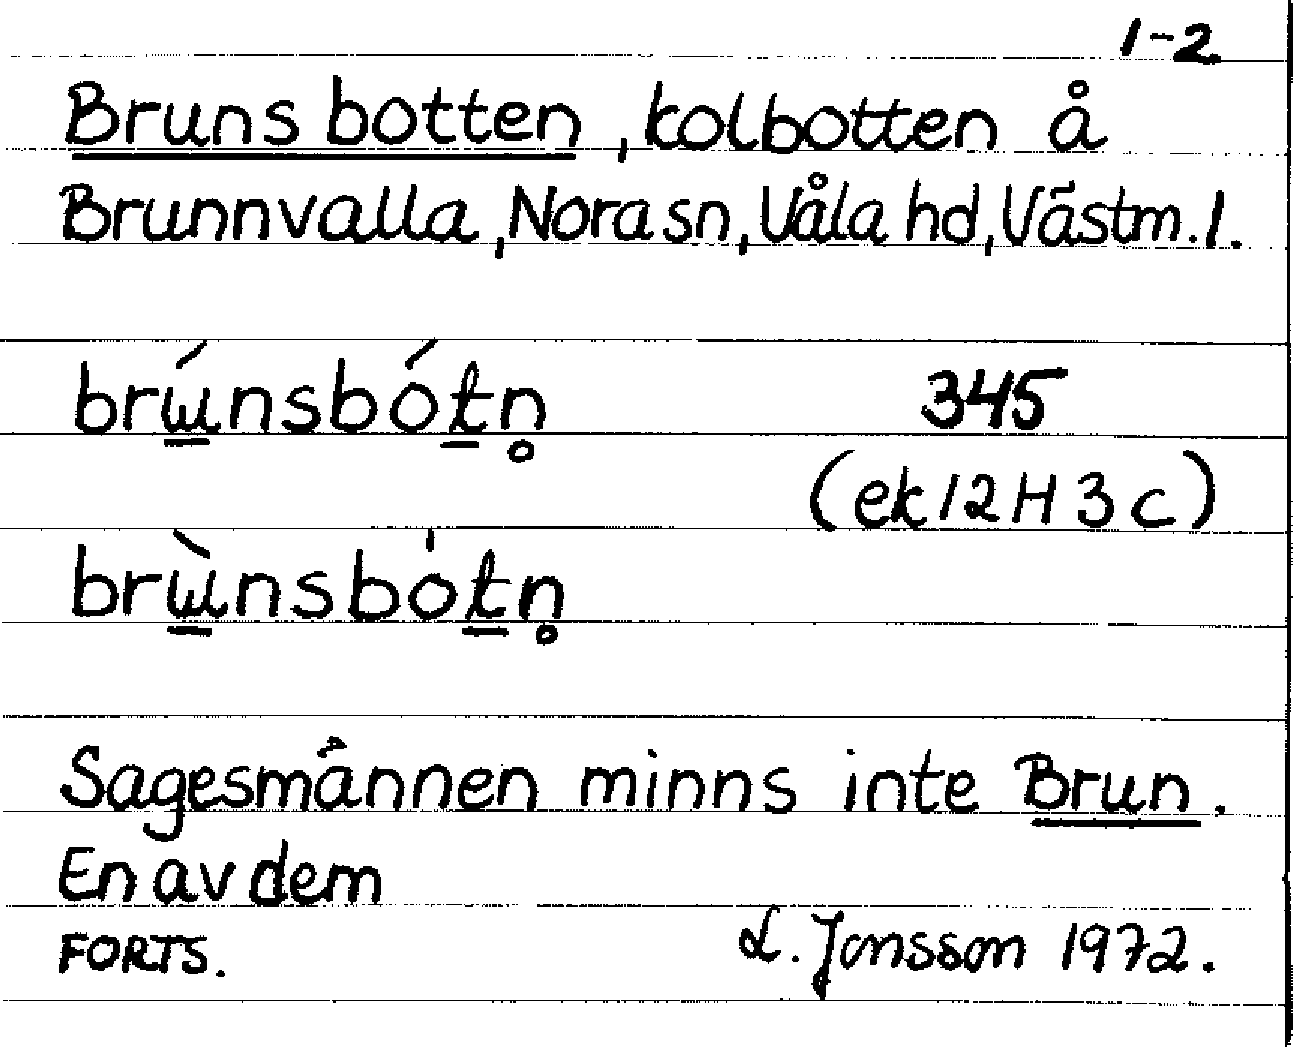 1-2
Brunsbotten, kolbotten å
Brunnvalla, Nora sn, Våla hd, Västm. l.
brɯ́nsbótn̥ 345
(ek 12 H 3 c)
brɯ̀nsbótn̥
Sagesmännen minns inte Brun.
En av dem
FORTS. L. Jonsson 1972.